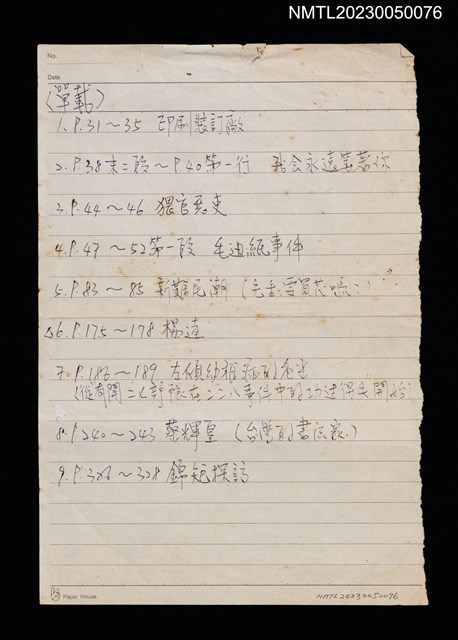 NMTL20230050076
No.
Date
(單載)
1. P.31～35 印刷裝訂廠
2. P.38末二段～P.40第一行 我会永遠等著你
3. P.44～46 猥官惡吏
4. P.47～52第一段 毛邊紙事件
5. P.83～85 新難民潮 (
△6. P.175～178 楊逵
7. P.186～189 左傾幼稚病的危害
(從有關二七部隊在二二八事件中的功过得失開始)
8. P.240～243 蔡輝皇 (台灣的書法家)
9. P.326～328 錦姃探訪
Paper House
NMTL20230050076